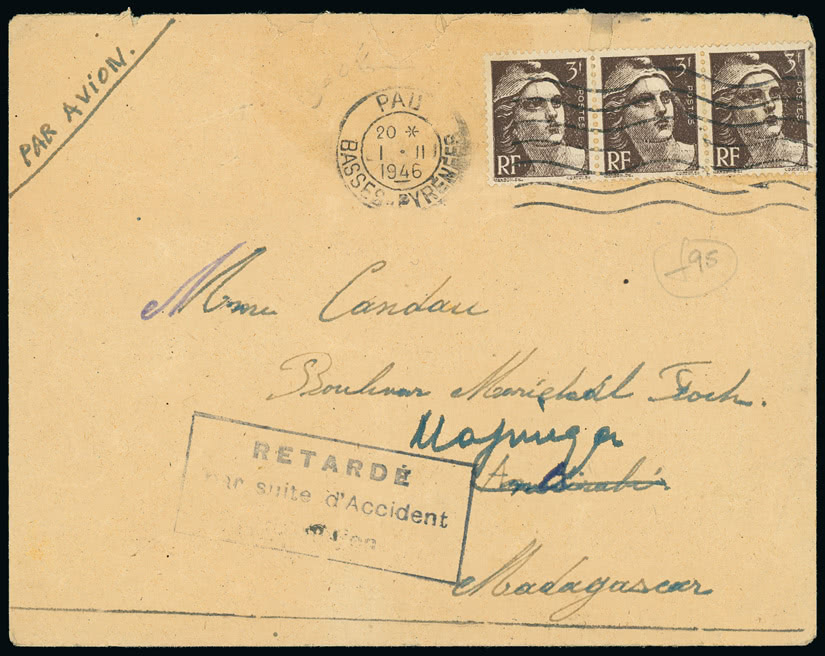 PAR AVION.
3F POSTES RF
3F POSTES RF
3F POSTES RF
PAU
20 *
1 · II
1946
BASSES-PYRENEES
95
Mme Candau
Boulevar Marichâl Foch.
Majunga
Antsirabé
RETARDÉ
par suite d'Accident
Madagascar